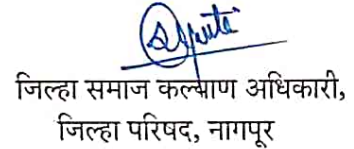 जिल्हा समाज कल्याण अधिकारी,
जिल्हा परिषद, नागपूर